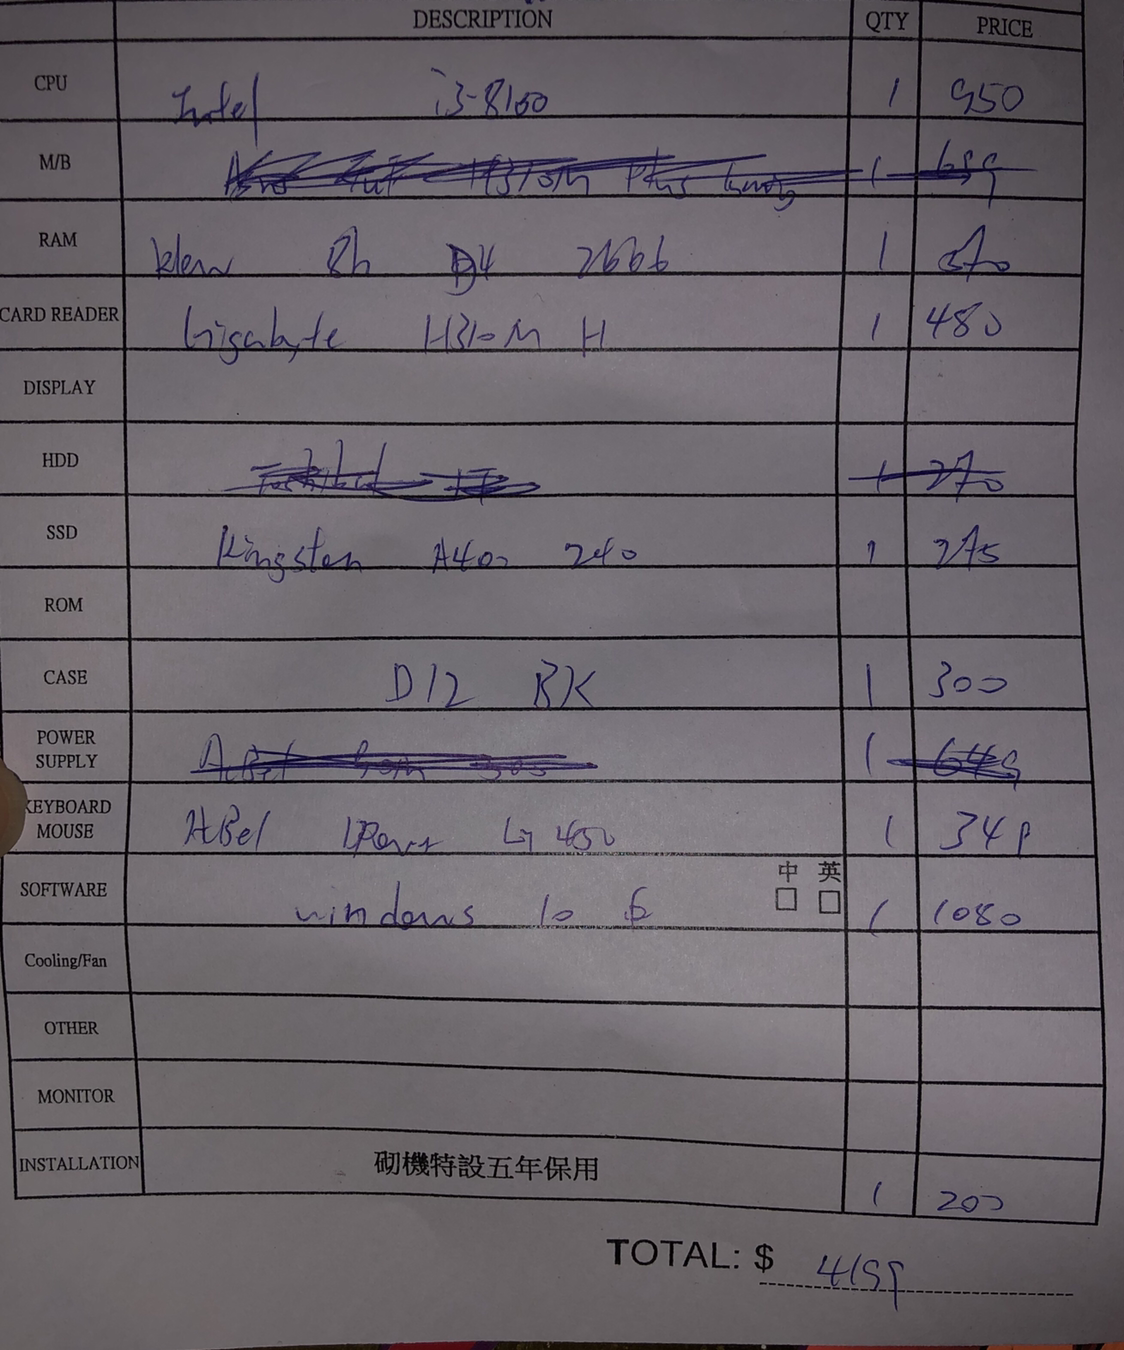 DESCRIPTION QTY PRICE
CPU Intel i3-8100 1 950
M/B H310M Plus 1 699
RAM klevv 8h D4 2666 1 570
CARD READER Gigabyte H310M H 1 480
DISPLAY
HDD Toshiba 1T 1 270
SSD Kingston A400 240 1 275
ROM
CASE D12 BK 1 300
POWER SUPPLY AcBel 1 649
KEYBOARD MOUSE AcBel 450 1 349
中 英
SOFTWARE windows 10 □ □ 1 1080
Cooling/Fan
OTHER
MONITOR
INSTALLATION 砌機特設五年保用 1 200
TOTAL: $ 4199